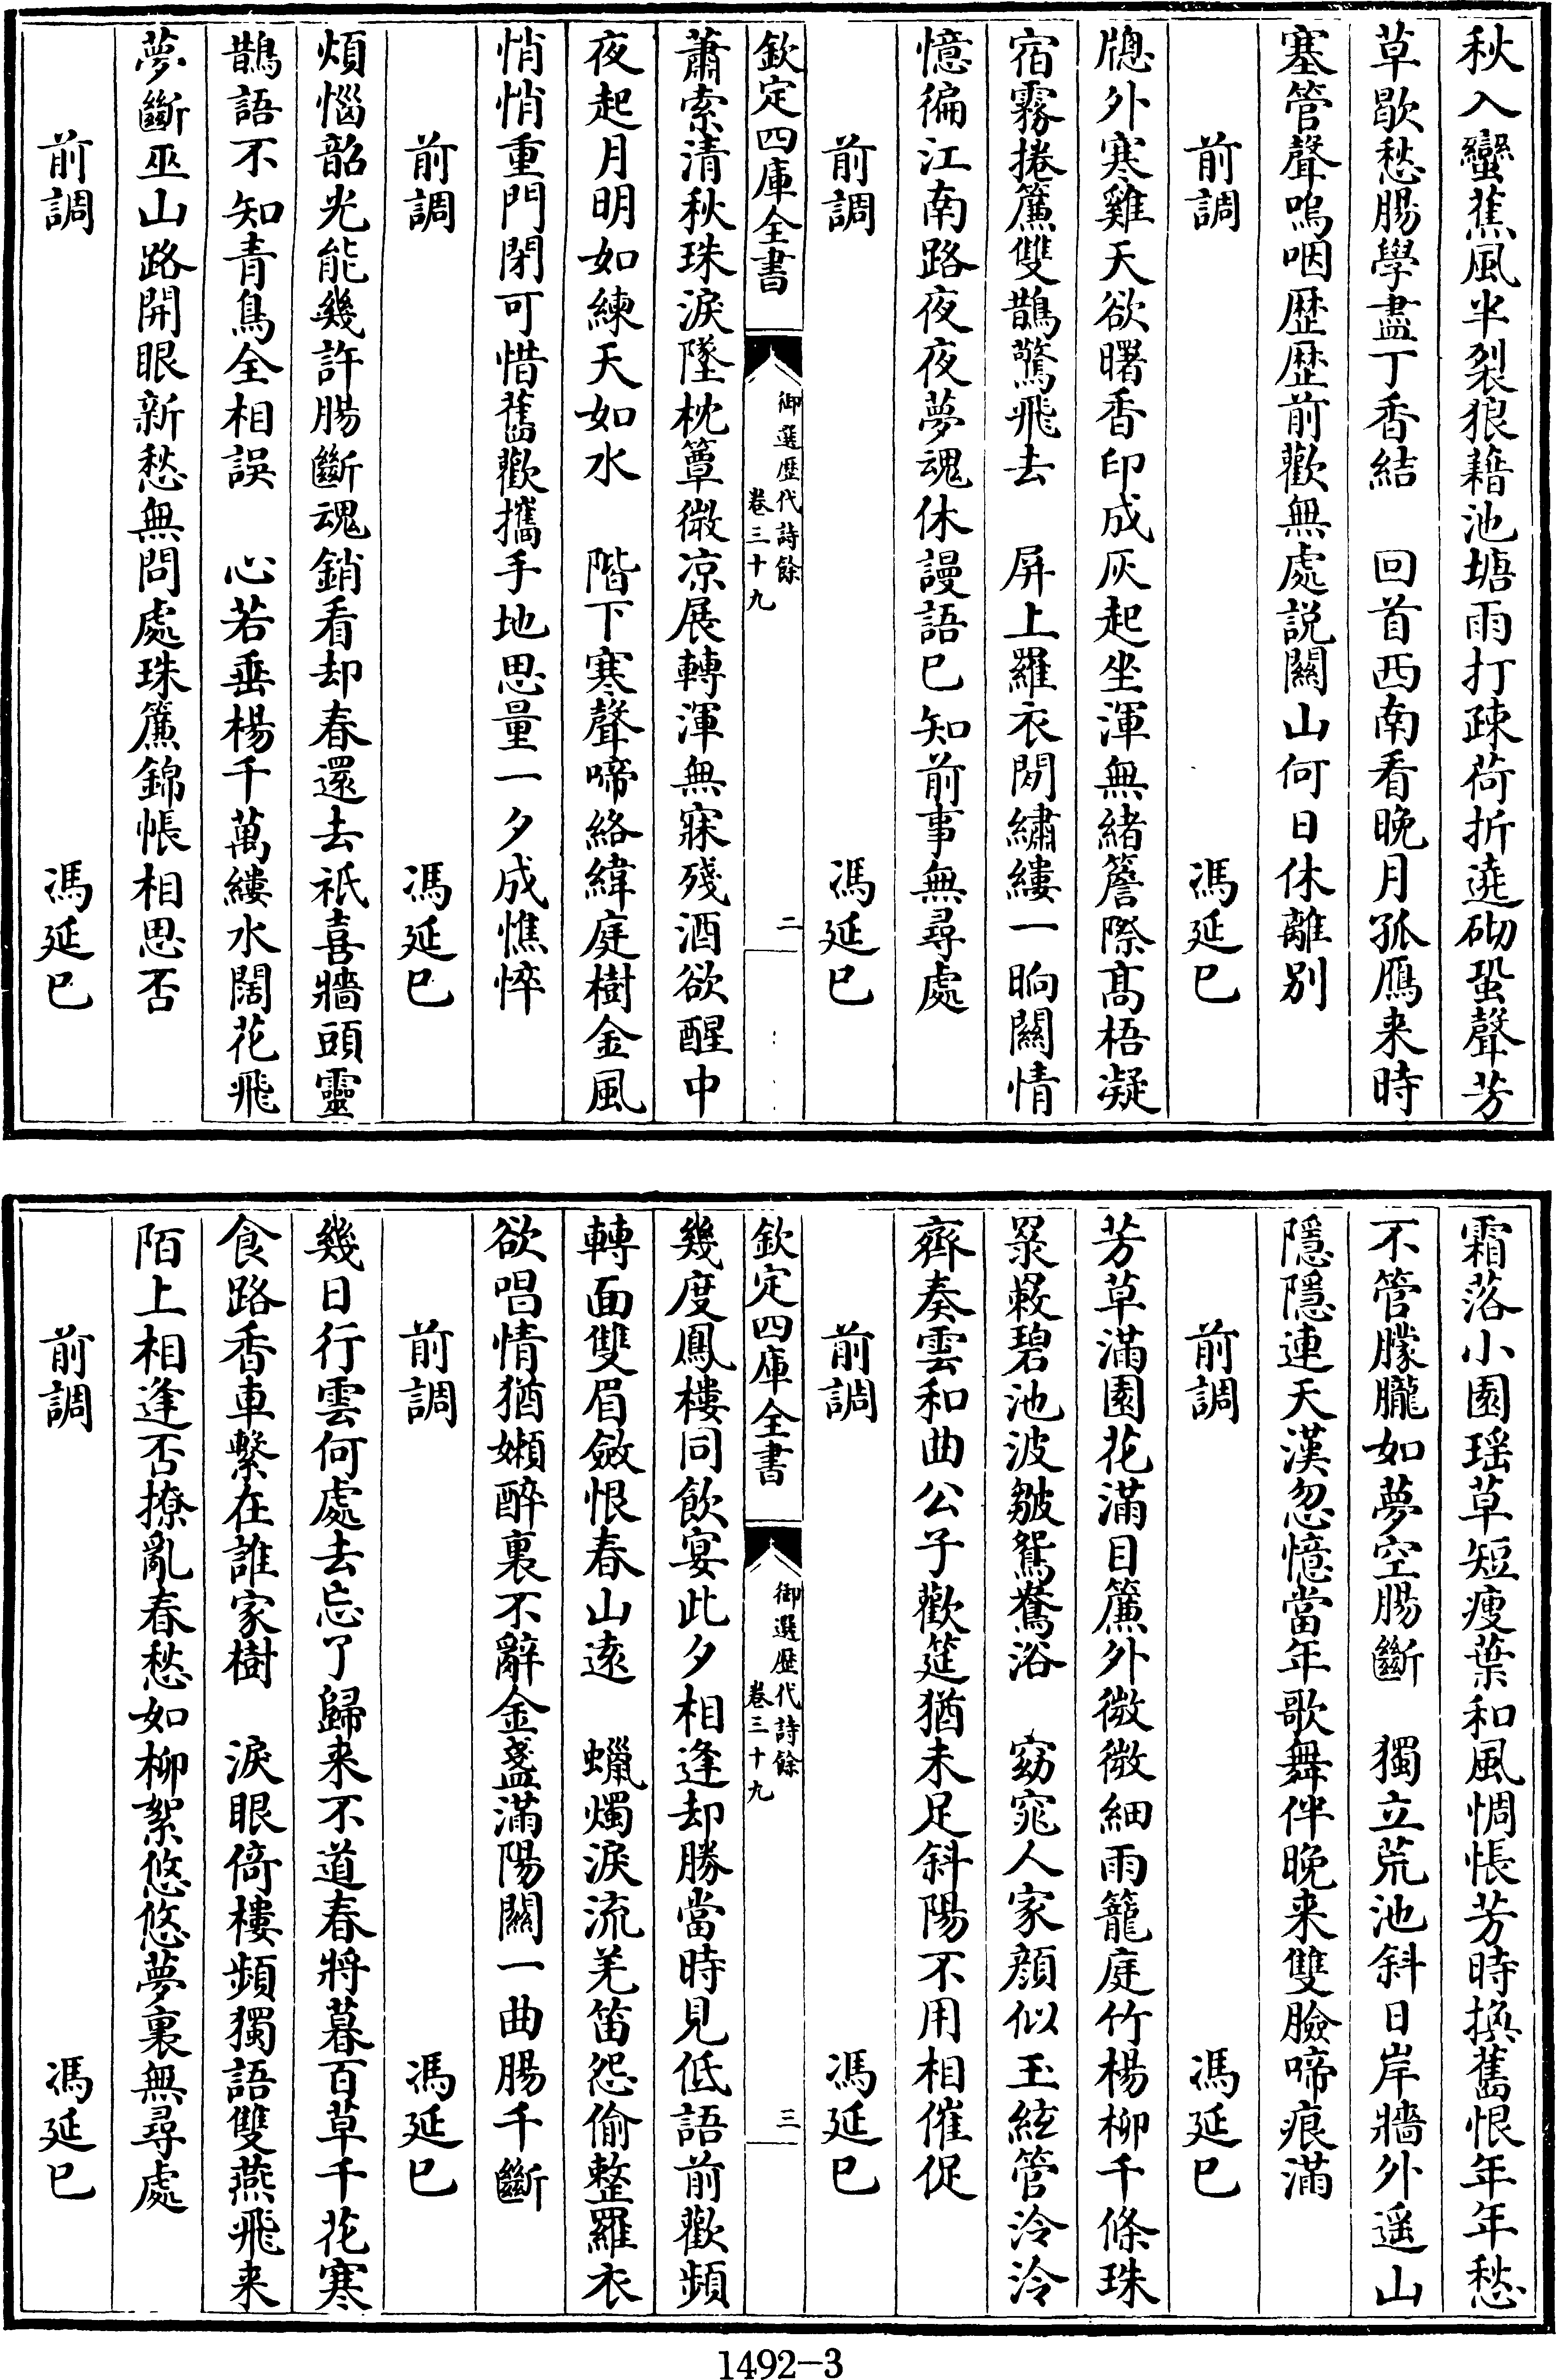 秋入蠻蕉風半裂狼藉池塘雨打疎荷折遶砌蛩聲芳
草歇愁腸學盡丁香結　回首西南看晚月孤鴈来時
塞管聲嗚咽歴歴前歡無處説關山何日休離別
前調　馮延巳
牎外寒雞天欲曙香印成灰起坐渾無緒簷際髙梧凝
宿霧捲簾雙鵲驚飛去　屏上羅衣閒繡縷一晌關情
憶徧江南路夜夜夢魂休謾語已知前事無尋處
前調　馮延巳
欽定四庫全書
御選歴代詩餘
卷三十九
二
蕭索清秋珠淚墜枕簟微凉展轉渾無寐殘酒欲醒中
夜起月明如練天如水　階下寒聲啼絡緯庭樹金風
悄悄重門閉可惜舊歡攜手地思量一夕成憔悴
前調　馮延巳
煩惱韶光能幾許腸斷魂銷看却春還去祇喜牆頭靈
鵲語不知青鳥全相誤　心若垂楊千萬縷水闊花飛
夢斷巫山路開眼新愁無問處珠簾錦帳相思否
前調　馮延巳
霜落小園瑶草短瘦葉和風惆悵芳時換舊恨年年愁
不管朦朧如夢空腸斷　獨立荒池斜日岸牆外遥山
隱隱連天漢忽憶當年歌舞伴晚来雙臉啼痕滿
前調　馮延巳
芳草滿園花滿目簾外微微細雨籠庭竹楊柳千條珠
䍥䍡碧池波皺鴛鴦浴　窈窕人家顔似玉絃管泠泠
齊奏雲和曲公子歡筵猶未足斜陽不用相催促
前調　馮延巳
欽定四庫全書
御選歴代詩餘
卷三十九
三
幾度鳳樓同飲宴此夕相逢却勝當時見低語前歡頻
轉面雙眉斂恨春山逺　蠟燭淚流羌笛怨偷整羅衣
欲唱情猶嬾醉裏不辭金盞滿陽關一曲腸千斷
前調　馮延巳
幾日行雲何處去忘了歸来不道春將暮百草千花寒
食路香車繫在誰家樹　淚眼倚樓頻獨語雙燕飛来
陌上相逢否撩亂春愁如柳絮悠悠夢裏無尋處
前調　馮延巳
1492-3